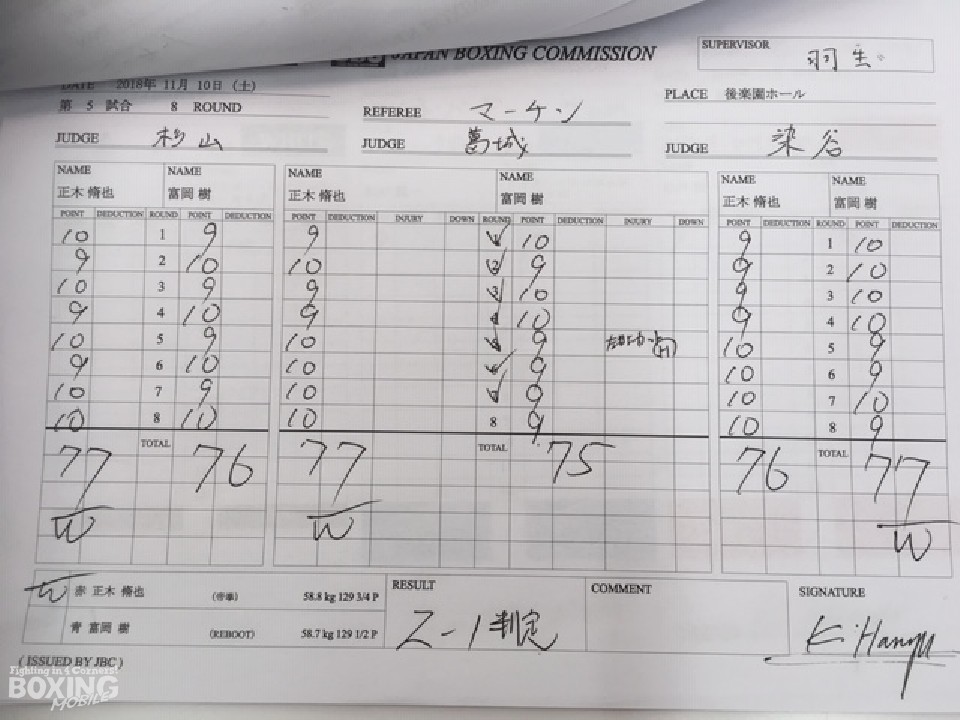 JAPAN BOXING COMMISSION
SUPERVISOR 羽生
DATE 2018年 11月 10日 (土)
第 5 試合 8 ROUND
REFEREE マーケン
PLACE 後楽園ホール
JUDGE 杉山
JUDGE 葛城
JUDGE 染谷
NAME NAME NAME NAME NAME NAME
正木 脩也 富岡 樹 正木 脩也 富岡 樹 正木 脩也 富岡 樹
POINT DEDUCTION ROUND POINT DEDUCTION POINT DEDUCTION INJURY DOWN ROUND POINT DEDUCTION INJURY DOWN POINT DEDUCTION ROUND POINT DEDUCTION
10 1 9 9 1 10 9 1 10
9 2 10 10 2 9 9 2 10
10 3 9 9 3 10 9 3 10
9 4 10 9 4 10 9 4 10
10 5 9 10 5 9 10 5 9
9 6 10 10 6 9 10 6 9
10 7 9 10 7 9 10 7 10
10 8 10 10 8 9 10 8 9
77 TOTAL 76 77 TOTAL 75 76 TOTAL 77
W W W
W 赤 正木 脩也 (帝拳) 58.8 kg 129 3/4 P
青 富岡 樹 (REBOOT) 58.7 kg 129 1/2 P
RESULT
2-1 判定
COMMENT
SIGNATURE
K. Hanyu
( ISSUED BY JBC )
Fighting in 4 Corners!
BOXING
MOBILE